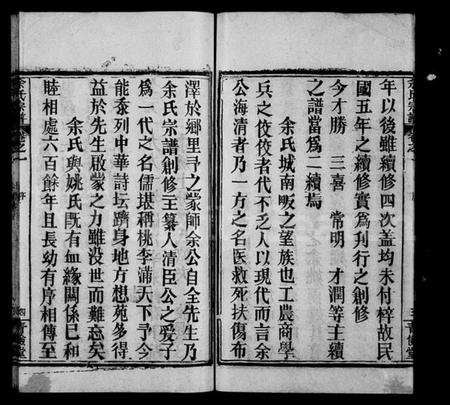 年以後雖續修四次蓋均未付梓故民
國五年之續修實爲刋行之創修
今才勝 三喜 常明 才潤等主續
之譜當爲二續焉
余氏城南畈之望族也工農商學
兵之佼佼者代不乏人以現代而言余
公海清者乃一方之名医救死扶傷布
澤於鄉里予之蒙師余公自全先生乃
余氏宗譜創修主纂人清臣公之爱子
爲一代之名儒堪稱桃李滿天下予今
能忝列中華詩坛躋身地方想苑多得
益於先生啟蒙之力雖没世而難忘矣
余氏與姚氏既有血緣關係已和
睦相處六百餘年且長幼有序相傳至
余氏宗譜
卷之一
序